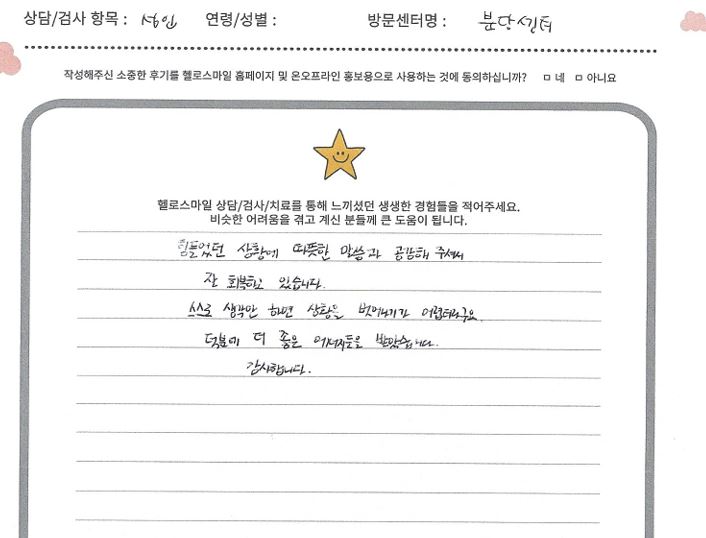 상담/검사 항목 : 성인 연령/성별 : 방문센터명 : 분당센터
작성해주신 소중한 후기를 헬로스마일 홈페이지 및 온오프라인 홍보용으로 사용하는 것에 동의하십니까? ㅁ 네 ㅁ 아니요
헬로스마일 상담/검사/치료를 통해 느끼셨던 생생한 경험들을 적어주세요.
비슷한 어려움을 겪고 계신 분들께 큰 도움이 됩니다.
힘들었던 상황에 따뜻한 말씀과 공감해 주셔서
잘 회복하고 있습니다.
스스로 생각만 하면 상황을 벗어나기가 어렵더라구요.
덕분에 더 좋은 에너지들을 받았습니다.
감사합니다.